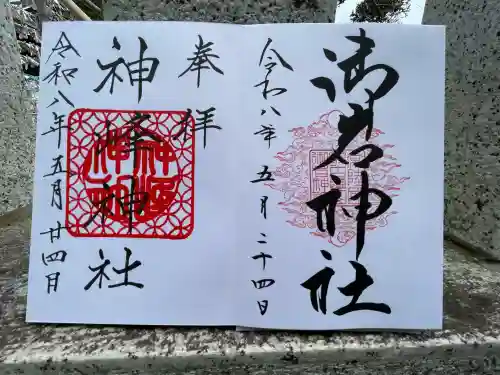 御岩神社
令和八年五月二十四日
奉拝
神峰神社
令和八年五月廿四日